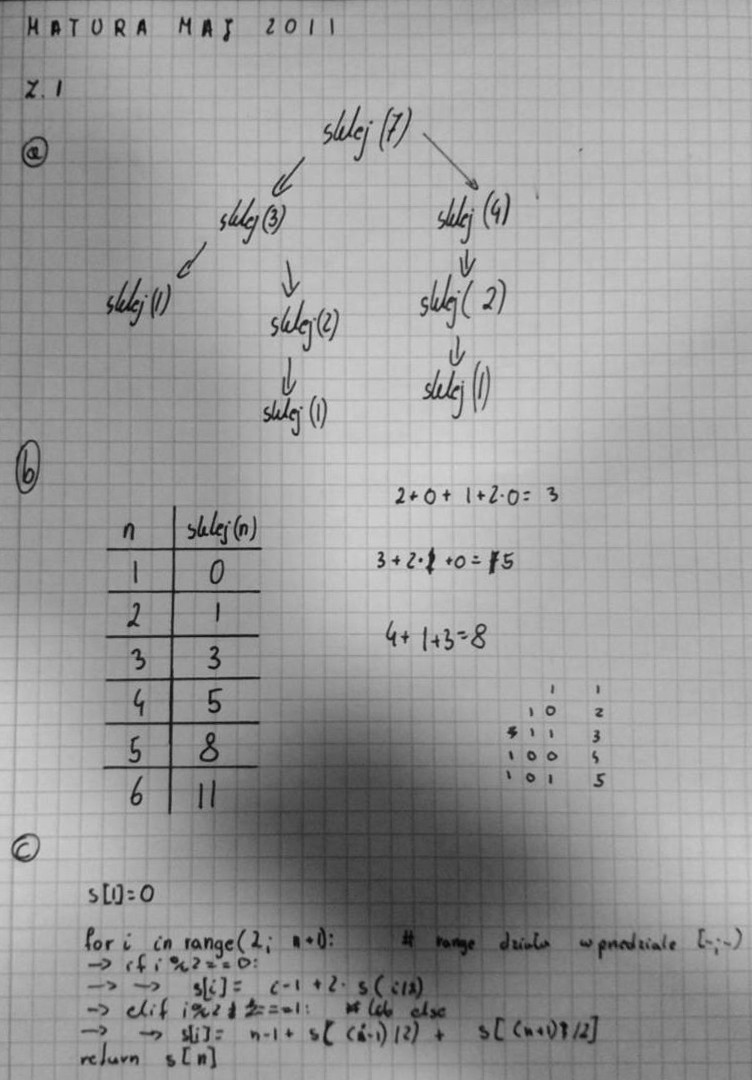 MATURA MAJ 2011
Z.1
a
sklej(7)
sklej(3) sklej(4)
sklej(1) sklej(2) sklej(2)
sklej(1) sklej(1)
b
2+0+1+2·0= 3
n sklej(n)
1 0
3+2·1+0=5
2 1
4+1+3=8
3 3
4 5
5 8
6 11
1 1
1 0 2
1 1 3
1 0 0 4
1 0 1 5
c
s[1]=0
for i in range(2; n+1): # range działa w przedziale [-;-)
→ if i%2==0:
→ → s[i]= i-1+2· s(i/2)
→ elif i%2==1: # lub else
→ → s[i]= n-1+ s[(n-1)/2)+ s[(n+1)/2]
return s[n]